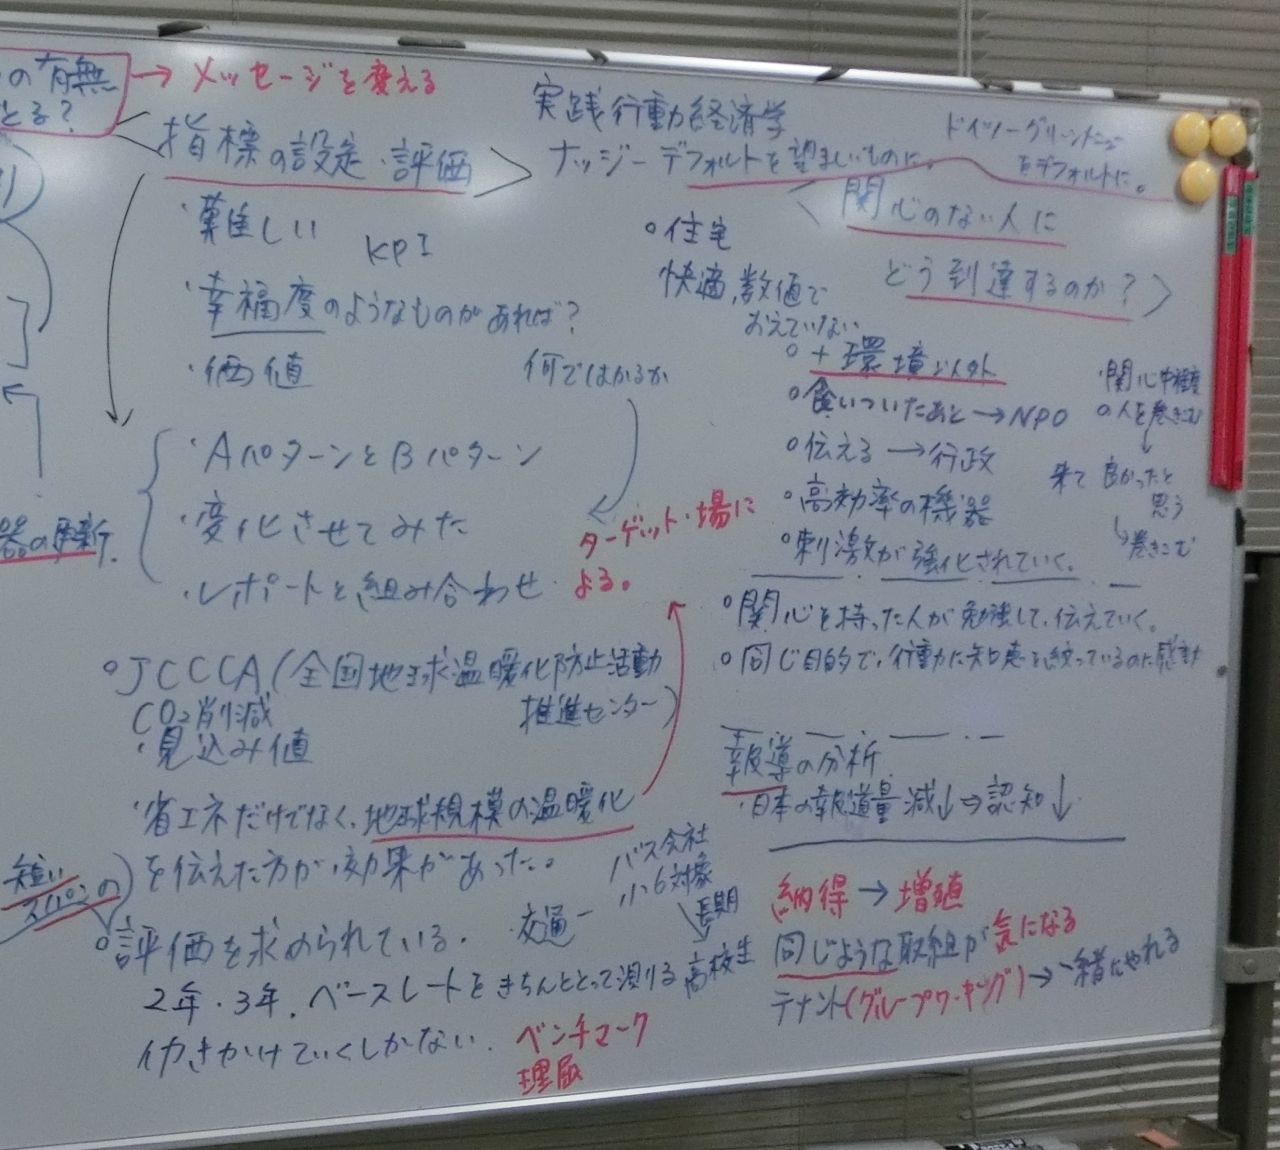 の有無
とる?
→ メッセージを変える
指標の設定・評価
・難しい
KPI
・幸福度のようなものがあれば?
・価値
何ではかるか
・AパターンとBパターン
・変化させてみた
・レポートと組み合わせ
ターゲット・場に
よる。
器の更新.
○JCCCA(全国地球温暖化防止活動
推進センター)
CO2削減
・見込み値
・省エネだけでなく、地球規模の温暖化
を伝えた方が効果があった。
短い
スパンの
○評価を求められている.
2年・3年. ベースレートをきちんととって測り
働きかけていくしかない.
ベンチマーク
交通ー
バス会社
小6対象
長期
高校生
実践行動経済学
ナッジー デフォルトを望ましいものに。
ドイツーグリーン
をデフォルトに。
関心のない人に
どう到達するのか?
○住宅
快適、数値で
おえていない
○+環境以外
○食いついたあと→NPO
○伝える→行政
○高効率の機器
○刺激が強化されていく.
関心中程度
の人を巻きこむ
来て良かったと
思う
巻きこむ
○関心を持った人が勉強して、伝えていく。
○同じ目的で、行動に知恵を絞っているのに感動
報導の分析
・日本の報道量減↓⇒認知↓
納得→増殖
同じような取組が気になる
テナント(グループワーキング)→一緒にやれる